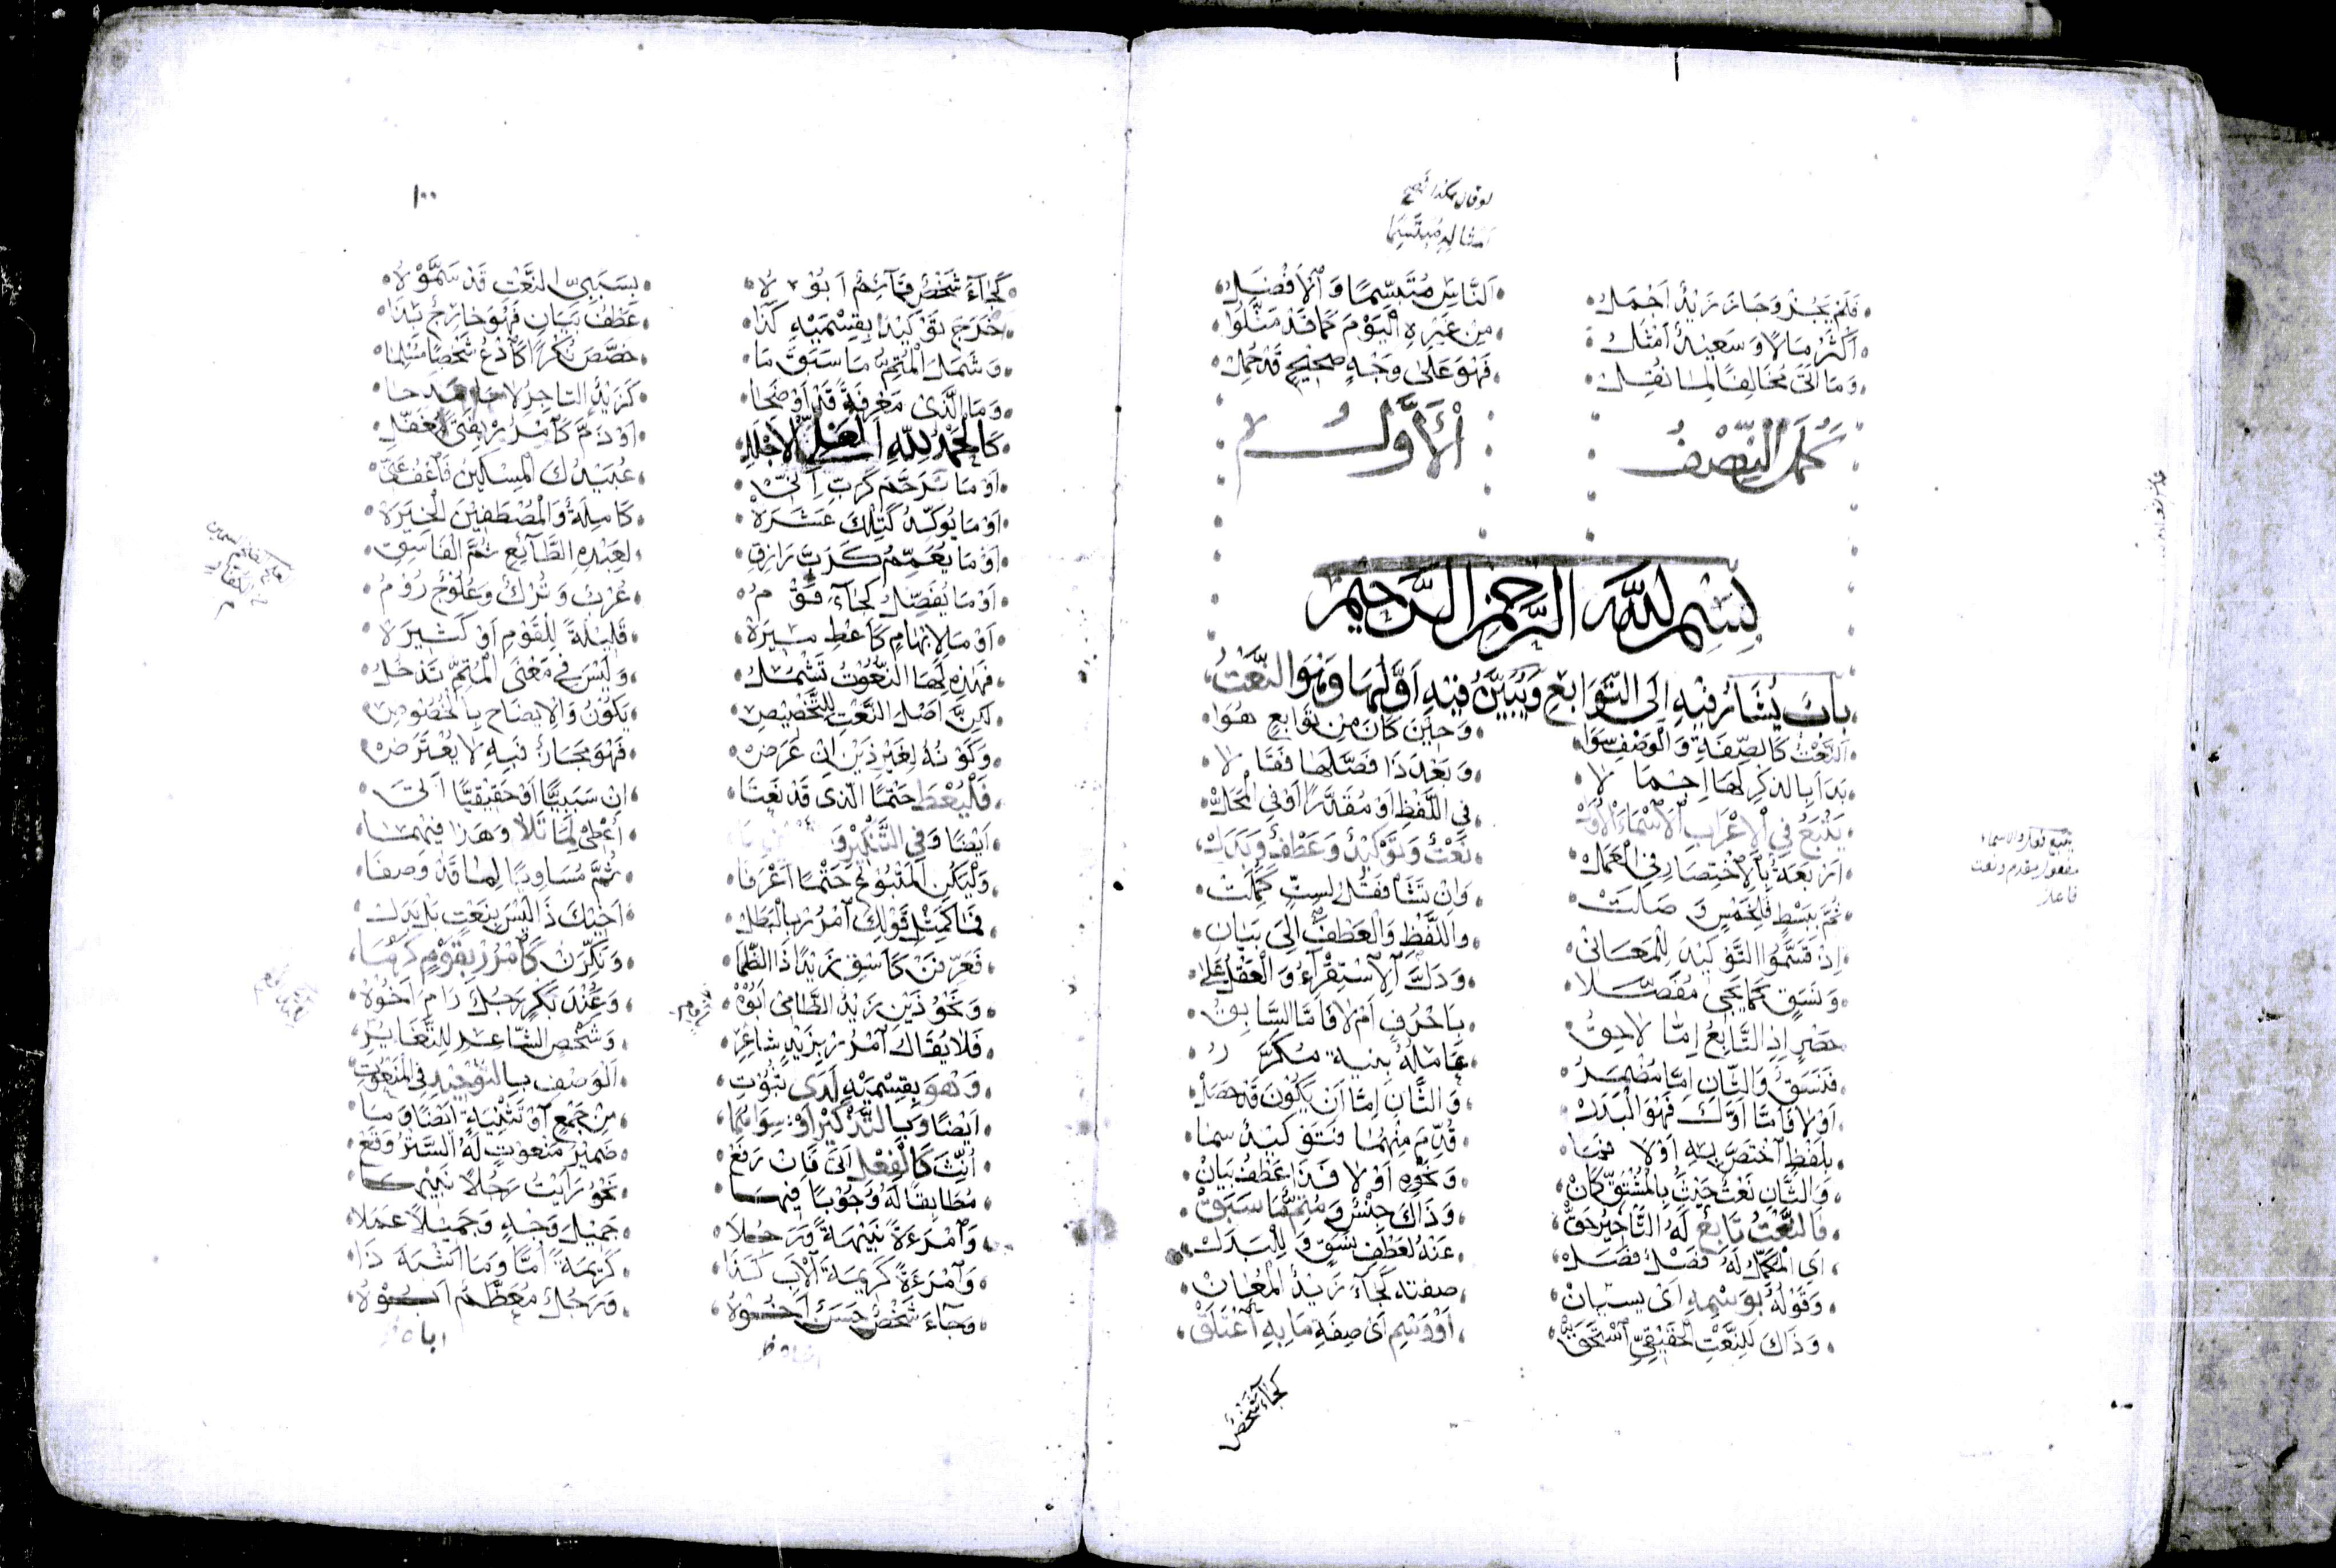 لو قال هكذا لصح
فَلَمْ يَجُزْ وَجَازَ زَيْدٌ اَجْمَلُ اَلنَّاسِ مُتَبَسِّمًا وَالْاَفْضَلُ
اَكْثَرُ مَالًا وَسَعِيدٌ اَمْثَلُ مِنْ غَيْرِهِ الْيَوْمَ كَمَا قَدْ مَثَّلُوْا
وَمَا اَتٰى مُخَالِفًا لِمَا نُقِلْ فَهْوَ عَلٰى وَجْهٍ صَحِيْحٍ قَدْ حُمِلْ
كَمُلَ النِّصْفُ الْأَوَّلُ
بِسْمِ اللّٰهِ الرَّحْمٰنِ الرَّحِيْمِ
بَابٌ يُشَارُ فِيْهِ اِلَى التَّوَابِعِ وَيُبَيَّنُ فِيْهِ اَوَّلُهَا وَهُوَ النَّعْتُ
اَلنَّعْتُ كَالصِّفَةِ وَالْوَصْفِ سَوَا وَحِيْنَ كَانَ مِنْ تَوَابِعٍ هُوَا
بَدَاَ بِالذِّكْرِ لَهَا اِجْمَا لَا وَبَعْدَ ذَا فَصَّلَهَا فَقَا لَا
يَتْبَعُ فِي الْاِعْرَابِ الْاَسْمَاءَ الْاُوَلْ فِي اللَّفْظِ اَوْ مُقَدَّرًا اَوْ فِي الْمَحَلْ
اَرْبَعَةٌ بِالْاِخْتِصَارِ فِي الْعَمَلْ نَعْتٌ وَتَوْكِيْدٌ وَعَطْفٌ وَبَدَلْ
ثُمَّ بِبَسْطٍ فَلِخَمْسٍ وَصَلَتْ وَاِنْ تَشَأْ فَقُلْ لِسِتٍّ كَمُلَتْ
اِذْ قَسَّمُوا التَّوْكِيْدَ لِلْمَعَانِيْ وَاللَّفْظِ وَالْعَطْفَ اِلَى بَيَانِ
وَنَسَقٍ كَمَا يَجِيْ مُفَصَّلَا وَدَلَّ الْاِسْتِقْرَاءُ وَالْعَقْلُ عَلٰى
حَصْرٍ اِذِ التَّابِعُ اِمَّا لَاحِقُ بِاَحْرُفٍ اَمْ لَا فَاَمَّا السَّابِقُ
فَنَسَقٌ وَالثَّانِ اِمَّا مُضْمَرُ عَامِلُهُ بِنِيَةٍ مُكَرَّ رُ
اَوْ لَا فَاَمَّا اَوَّلٌ فَهْوَ الْبَدَلْ وَالثَّانِ اِمَّا اَنْ يَكُوْنَ قَدْ حَصَلْ
بِلَفْظٍ اخْتَصَّ بِهِ اَوْ لَا فَمَا قُدِّمَ مِنْهُمَا فَتَوْكِيْدٌ سَمَا
وَالثَّانِ نَعْتٌ حَيْثُ بِالْمُشْتَقِّ كَانْ وَنَحْوِهِ اَوْ لَا فَذَا عَطْفُ بَيَانْ
فَالنَّعْتُ تَابِعٌ لَهُ التَّأْخِيْرُ حَقّْ وَذَاكَ جِنْسٌ وَمُتِمٌّ مَا سَبَقْ
اَيِ الْمُكَمِّلُ لَهُ فَصْلٌ فَصَلْ عَنْهُ لِعَطْفِ نَسَقٍ وَلِلْبَدَلْ
وَقَوْلُهُ بِوَسْمِهِ اَيْ بِبَيَانْ صِفَتِهِ كَجَاءَ زَيْدٌ الْمُعَانْ
وَذَاكَ لِلنَّعْتِ الْحَقِيْقِيِّ اسْتَحَقّْ اَوْ وَسْمِ اَيْ صِفَةِ مَا بِهِ اعْتَلَقْ
كجاء شخص
١٠٠
كَجَاءَ شَخْصٌ قَائِمٌ اَبُوْ لَا بِسَبَبِيِّ النَّعْتِ قَدْ سَمَّوْ لَا
خَرَجَ تَوْكِيْدٌ بِقِسْمَيْهِ كَذَا عَطْفُ بَيَانٍ فَهُوَ خَارِجٌ بِذَا
وَشَمَلَ الْمُتِمُّ مَا سَبَقَ مَا خَصَّصَ نُكْرًا كَادْعُ شَخْصًا مُسْلِمَا
وَمَا الَّذِيْ مَعْرِفَةً قَدْ اَوْضَحَا كَزَيْدٌ التَّاجِرُ
كَالْحَمْدُ لِلّٰهِ الْعَلِيِّ الْاَجْلَلِ اَوْ ذَمَّ كَامْرُرْ بِفَتًى مُغَفَّلِ
اَوْ مَا تَرَحَّمَ كَرَبِّ اِنِّيْ عُبَيْدُكَ الْمِسْكِيْنُ فَاعْفُ عَنِّيْ
اَوْ مَا يُوَكِّدُ كَتِلْكَ عَشَرَهْ كَامِلَةٌ وَالْمُصْطَفَيْنَ الْخِيَرَهْ
اَوْ مَا يُعَمِّمُ كَرَبٌّ رَازِقِ لِعَبْدِهِ الطَّائِعِ ثُمَّ الْفَاسِقِ
اَوْ مَا يُفَصِّلُ كَجَاءَ قَوْ مُ عُرْبٌ وَتُرْكٌ وَعُلُوْجٌ رُوْمُ
اَوْ مَا لِاِبْهَامٍ كَاَعْطِ مِيْرَهْ قَلِيْلَةً لِلْقَوْمِ اَوْ كَثِيْرَهْ
فَهٰذِهِ لَهَا النُّعُوْتُ تَشْمَلُ وَلَيْسَ فِيْ مَعْنَى الْمُتِمِّ تَدْخُلُ
لٰكِنَّ اَصْلَ النَّعْتِ لِلتَّخْصِيْصِ يَكُوْنُ وَالْاِيْضَاحِ بِالْخُصُوْصِ
وَكَوْنُهُ لِغَيْرِ ذَيْنِ اِنْ عَرَضْ فَهْوَ مَجَازٌ فِيْهِ لَا يُعْتَرَضْ
فَلْيُعْطَ حَتْمًا الَّذِيْ قَدْ نَعَتَا اِنْ سَبَبِيًّا اَوْ حَقِيْقِيًّا اَتٰى
اَيْضًا وَفِي التَّنْكِيْرِ وَ اُعْطِيْ لِمَا تَلَا وَهٰذَا فِيْهِمَا
وَلْيَكُنِ الْمَتْبُوْعُ حَتْمًا اَعْرَفَا ثُمَّ مُسَاوِيًا لِمَا قَدْ وَصَفَا
فَمَا كَمِثْلِ قَوْلِكَ امْرُرْ بِالْبَطَلْ اَخِيْكَ ذَا لَيْسَ بِنَعْتٍ بَلْ بَدَلْ
فَعَرِّفَنْ كَاسْقِ زَيْدًا ذَا الظَّمَا وَنَكِّرَنْ كَامْرُرْ بِقَوْمٍ كُرَمَا
وَنَحْوُ ذَيْنِ زَيْدٌ الظَّامِيْ اَبُوْهْ وَعِنْدَ بَكْرٍ رَجُلٌ رَامٍ اَخُوْهْ
فَلَا يُقَالُ امْرُرْ بِزَيْدٍ شَاعِرِ وَشَخْصٍ الشَّاعِرِ لِلتَّغَايُرِ
وَهْوَ بِقِسْمَيْهِ لَدٰى ثُبُوْتِ اَلْوَصْفِ بِالتَّوْحِيْدِ فِي الْمَنْعُوْتِ
اَيْضًا وَبِالتَّذْكِيْرِ اَوْ سِوَاهُمَا مِنْ جَمْعٍ اَوْ تَثْنِيَةٍ اَيْضًا وَمَا
اُنِّثَ كَالْفِعْلِ اَتٰى فَاِنْ رَفَعْ ضَمِيْرَ مَنْعُوْتٍ لَهُ السَّتْرُ وَقَعْ
مُطَابِقًا لَهُ وُجُوْبًا فِيْهِمَا نَحْوُ رَاَيْتُ رَجُلًا
وَامْرَءَةً نَبِيْهَةً وَرَجُلَا جَمِيْلَ وَجْهٍ وَجَمِيْلًا عَمَلَا
وَامْرَءَةً كَرِيْمَةَ الْاَبِ كَذَا كَرِيْمَةً اُمًّا وَمَا اَشْبَهَ ذَا
وَجَاءَ شَخْصٌ حَسَنٌ اَخُوْهُ وَرَجُلٌ مُعَظَّمٌ اَبُوْهُ
اباه